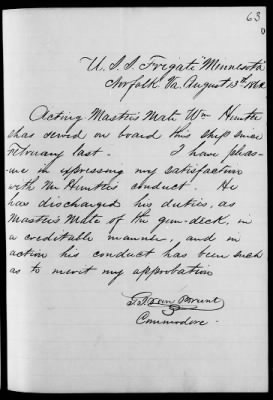 63
U.S. Frigate "Minnesota"
Norfolk Va. August 13th 1862
Acting Master's Mate Wm Hunter
has served on board this ship since
February last. I have pleas-
ure in expressing my satisfaction
with Mr Hunter's conduct. He
has discharged his duties, as
Master's Mate of the gun-deck, in
a creditable manner, and in
action his conduct has been such
as to merit my approbation
G. J. Van Brunt
Commodore.